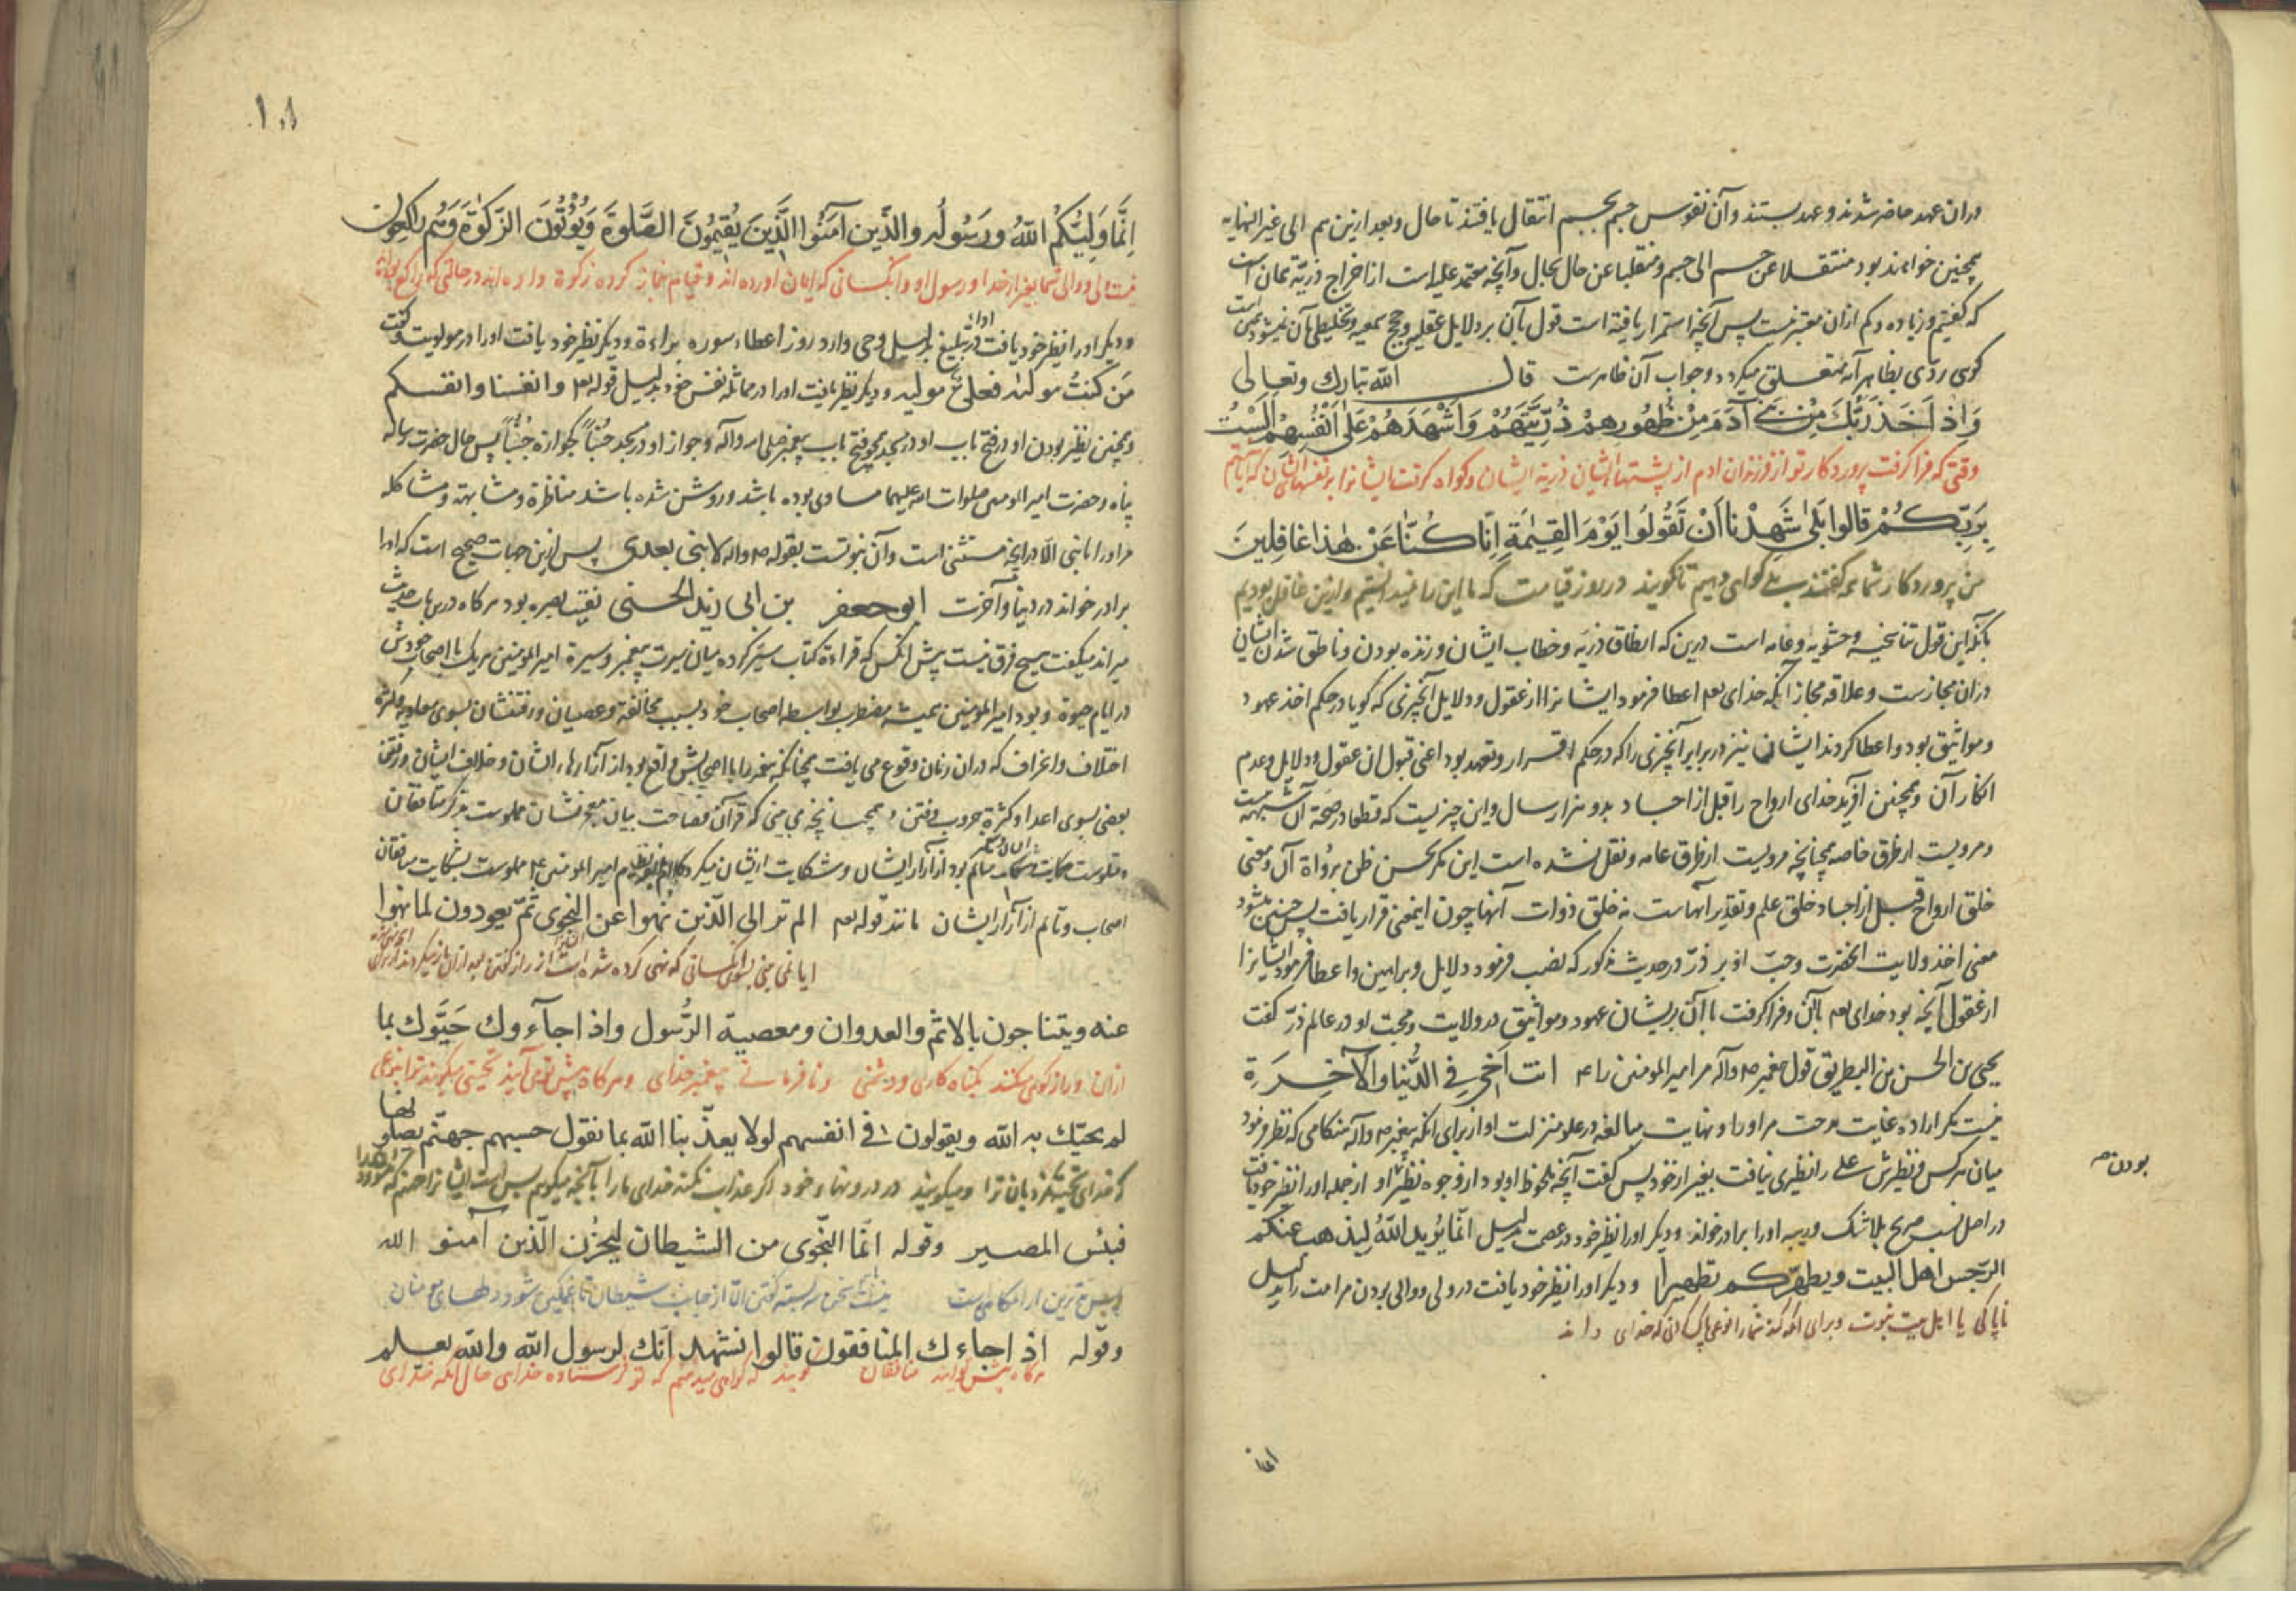 دران عهد حاضر شدند و عهد بستند وآن نفوس جسم بجسم انتقال یافتند تا حال وبعد ازین هم الی غیر النهایه
همچنین خواهند بود منتقلا عن جسم الی جسم ومنقلبا عن حال بحال وآنچه معتمد علیه است از اخراج ذریّة همان است
که گفتیم وزیاده وکم ازان معتبر نیست پس آنچه استمرار یافته است قول بآن بر دلایل عقلیه وحجج سمعیه وتخلیطی بآن نمیشود
کوی ردّی بظاهر آیه متعلق میگردد وجواب آن ظاهرست قال الله تبارك وتعالی
وَاِذ اَخَذَ رَبُّكَ مِنْ بَنی آدَمَ مِنْ ظُهُورِهِمْ ذُرِّيَّتَهُمْ وَاَشْهَدَهُمْ عَلٰی اَنْفُسِهِمْ اَلَسْتُ
وقتی که فرا گرفت پروردگار تو از فرزندان ادم از پشتهاء ایشان ذریه ایشان وکواه گرفت ایشانرا بر نفسهاء ایشان که ایا نیستم
بِرَبِّكُمْ قالوا بَلٰی شَهِدْنا اَنْ تَقُولُوا يَوْمَ القِيٰمَةِ اِنّا كُنّا عَنْ هٰذا غافِلِينَ
من پروردکار شما گفتند بلی کواهی دهیم تا نگویند در روز قیامت که ما این را نمیدانستیم وازین غافل بودیم
بانکه این قول تناسخیه وحشویه وعامه است درین که انطاق ذریّه وخطاب ایشان وزنده بودن وناطق شدن ایشان
دران مجازست وعلاقه مجاز آنکه خدای تعم اعطا فرمود ایشانرا از عقول ودلایل آنچیزی که کویا در حکم اخذ عهود
ومواثیق بود واعطا کردند ایشان نیز در برابر آنچیزی را که در حکم اقرار وتعهد بود اعنی قبول ان عقول ودلایل وعدم
انکار آن وهمچنین آفرید خدای ارواح را قبل از اجساد بدو هزار سال واین چیزیست که قطعا در صحّة آن شبهه نیست
ومرویست از طرق خاصه همچنانچه مرویست از طرق عامه ونقل نشده است این مکر بحسن ظن برواة آن ومعنی
خلق ارواح قبل از اجساد خلق علم وتقدیر آنهاست نه خلق ذوات آنها چون اینمعنی قرار یافت پس چنین میشود
معنی اخذ ولایت انحضرت وحبّ او بر ذرّ در حدیث مذکور که نصب فرمود دلایل وبراهین واعطا فرمود ایشانرا
از عقول آنچه بود خدای تعم بآن وفرا گرفت باآن بریشان عهود ومواثیق در ولایت ومحبت او در عالم ذرّ گفت
یحیی بن الحسن بن البطریق قول پیغمبر ص وآله مر امیر المومنین را ع انت اَخی فِی الدُّنیا وَالآخِرَةِ
نیست مکر اراده غایت مدحت مر اورا ونهایت مبالغه در علو منزلت او از برای انکه پیغمبر ص وآله هنکامی که نظر فرمود
میان هر کس ونظیرش علی را نظیری نیافت بغیر از خود پس گفت آنچه ملحوظ او بود از وجوه نظیر او از جمله اورا نظیر خود یافت
بودن صح
در اصل نسب صریح بلا شک وریبه اورا برادر خواند ودیکر اورا نظیر خود در عصمت بدلیل انّما یُرید اللهُ لِیُذهب عنكم
الرّجس اهل البیت ویطهّركم تطهیرا ودیکر اورا نظیر خود یافت در ولی ووالی بودن مر امت را بدلیل
ناپاکی یا اهل بیت نبوت وبرای انکه کند شمارا نوعی پاک کردنی که خدای داند
انما
۱۰۸
اِنَّما وَلِيُّكُمُ اللهُ ورَسُولُه والَّذین آمَنُوا الَّذینَ یُقیمُونَ الصَّلوةَ وَیُؤْتُونَ الزَّكوٰةَ وَهُم راكِعُون
نیست ولی ووالی شما بغیر از خدا ورسول او وانکسانی که ایمان اورده اند وقیام بنماز کرده زکوة داده اند در حالتی که راکع بوده اند
ودیکر اورا نظیر خود یافت در اداء تبلیغ بدلیل وحی وارد روز اعطاء سوره براءة ودیکر نظیر خود یافت اورا در مولویت وگفت
مَن كنتُ مولاه فعلیٌّ مولیه ودیکر نظیر یافت اورا در مماثله نفس خود بدلیل قوله تعم وانفسنا وانفسكم
وهمچنین نظیر بودن او در فتح باب او در مسجد همچو فتح باب پیغمبر صلی الله وآله وجواز او در مسجد جُنُباً کجوازه جُنُباً پس حال حضرت رسالت
پناه وحضرت امیر المومنین صلوات الله علیهما مساوی بوده باشد وروشن شده باشد مناظرة ومشابهة ومشاکله
مر اورا بانبی الّا در انچه مستثنی است وآن نبوتست بقوله ص واله لا نبی بعدی پس ازین جهات صحیح است که اورا
برادر خواند در دنیا وآخرت ابو جعفر بن ابی زید الحسنی نقیب بصره بود هر کاه درس باب حدیث
میراند میگفت هیچ فرق نیست پیش انکس که قراءة کتاب سیر کرده میان سیرت پیغمبر وسیرة امیر المومنین هر یک با اصحاب خودش
در ایام حیوة وبود امیر المومنین همیشه مضطرب بواسطه اصحاب خود بسبب مخالفة وعصیان ورفتنشان بسوی معاویه وکثرة
اختلاف واعراف که دران زمان وقوع می یافت همچنانکه پیغمبر را با اصحابش واقع بود از آزارهاء ایشان وخلاف ایشان ورفتن
بعضی بسوی اعدا وکثرة حروب وفتن وهمچنانچه می بینی که قرآن فصاحت بیان معجز نشان مملوست بذکر منافقان
بود از آزار ایشان وشکایت ازیشان میکرد کلام امیر المومنین ع مملوست بشکایت منافقان
اصحاب وتالم از آزار ایشان مانند قوله تعم الم تر الی الّذین نهوا عن النجوی ثمّ یعودون لما نهوا
ایا نمی بینی بسوی انکسانی که نهی کرده شده است از راز گفتن پس
عنه ویتناجون بالاثم والعدوان ومعصیة الرُّسول واذا جآءوك حَيَّوك بما
ازان وراز کوی میکنند بکناه کاری ودشمنی ونافرمانی پیغمبر خدای وهر کاه پیش توی آیند تحیتی میکویند ترا بنوعی
لم یحیّك به الله ویقولون فی انفسهم لولا یعذّبنا الله بما نقول حسبهم جهنّم یصلونها
که خدای تحیت نکرد بان ترا ومیکویند در درونهاء خود اکر عذاب نکند خدای مارا بآنچه میکویم بس است ایشانرا جهنم
فبئس المصیر وقوله انّما النّجوی من الشیطان لیحزن الّذین آمنو الله
نیست سخن سر بسته گفتن الّا از جانب شیطان تا غمکین شود دلهای مومنان
وقوله اذا جاءك المنافقون قالوا نشهد انّك لرسول الله والله یعلم
هر کاه پیش تو آیند منافقان کویند که کواهی میدهیم که تو فرستاده خدای حال انکه خدای